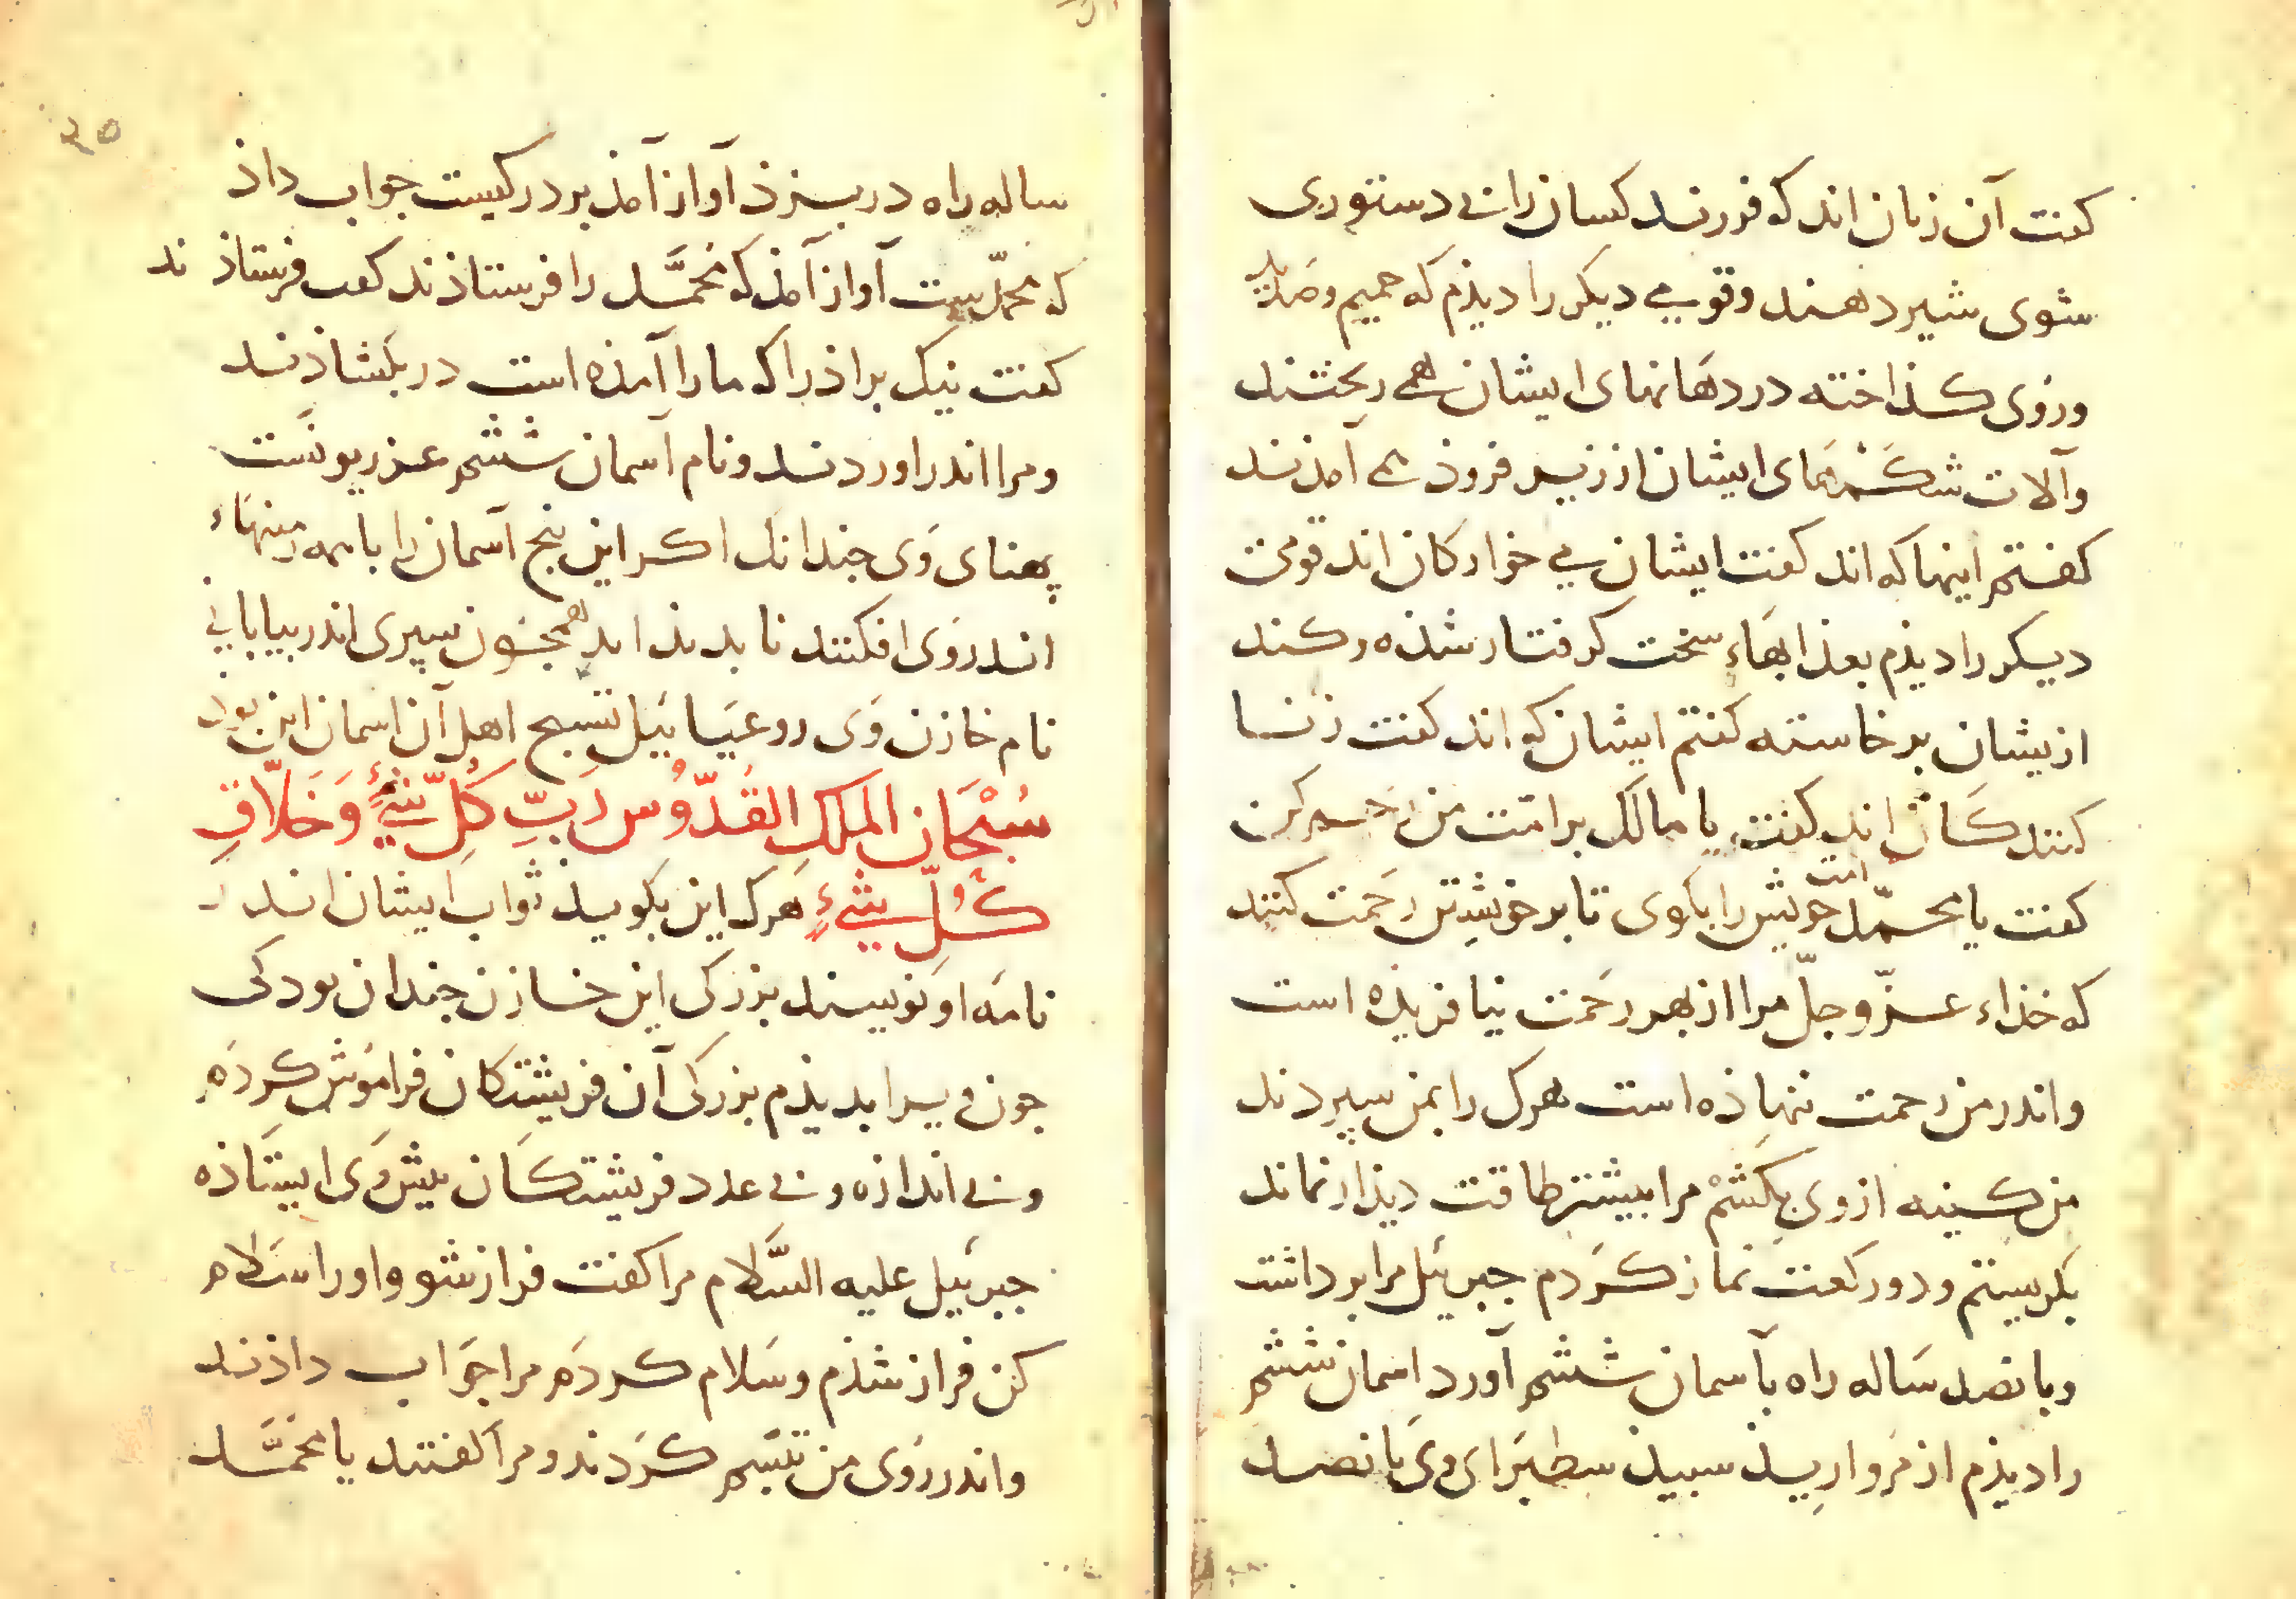 کفت آن زنان اند که فرزند کسان را بی دستوری
شوی شیر دهند و قومی دیکر را دیذم که حمیم و صدید
و روی کذاخته در دهانهای ایشان همی ریختند
و آلات شکمهای ایشان از زیر فروذ می آمذند
کفتم اینها که اند کفت ایشان می خوارکان اند قومی
دیکر را دیذم بعذابهاء سخت کرفتار شذه و کند
ازیشان برخاسته کفتم ایشان که اند کفت زنا
کنندکان اند کفتم یا مالک بر امت من رحم کن
کفت یا محمد امت خویش را بکوی تا بر خویشتن رحمت کنند
که خذاء عزّ وجلّ مرا از بهر رحمت نیافریذه است
و اندر من رحمت ننهاذه است هرک را بمن سپردند
من کینه ازوی بکشم مرا بیشتر طاقت دیذار نماند
بکریستم و دو رکعت نماز کردم جبرئیل مرا برداشت
و بانصد ساله راه بآسمان ششم آورد اسمان ششم
را دیذم از مرواریذ سبیذ سطبرای وی بانصد
ساله راه در بزذ آواز آمذ بر در کیست جواب داذ
که محمّدیست آواز آمذ که محمّد را فرستاذند کفت فرستاذند
کفت نیک براذرا که ما را آمذه است در بکشاذند
و مرا اندر اوردند و نام آسمان ششم عذریونست
پهنای وی جندانک اکر این بنج آسمان را با همه زمینهاء
اندر وی افکنند نابدیذ اید همجون سپری اندر بیابانی
نام خازن وی روعیائیل تسبیح اهل آن اسمان این بود
سُبْحَانَ الملکِ القُدُّوس رَبِّ کُلِّ شَیْءٍ وَخَلاَّقِ
کُلِّ شَیْءٍ هرک این بکویذ ثواب ایشان اندر
نامه او نویسند بزرکی این خازن جندان بود کی
جون ویرا بدیذم بزرکی آن فریشتکان فراموش کردم
و بی اندازه و بی عدد فریشتکان بیش وی ایستاذه
جبرئیل علیه السَّلام مرا کفت فراز شو و اورا سلام
کن فراز شذم و سلام کردم مرا جواب داذند
و اندر روی من تبسم کردند و مرا کفتند یا محمَّد